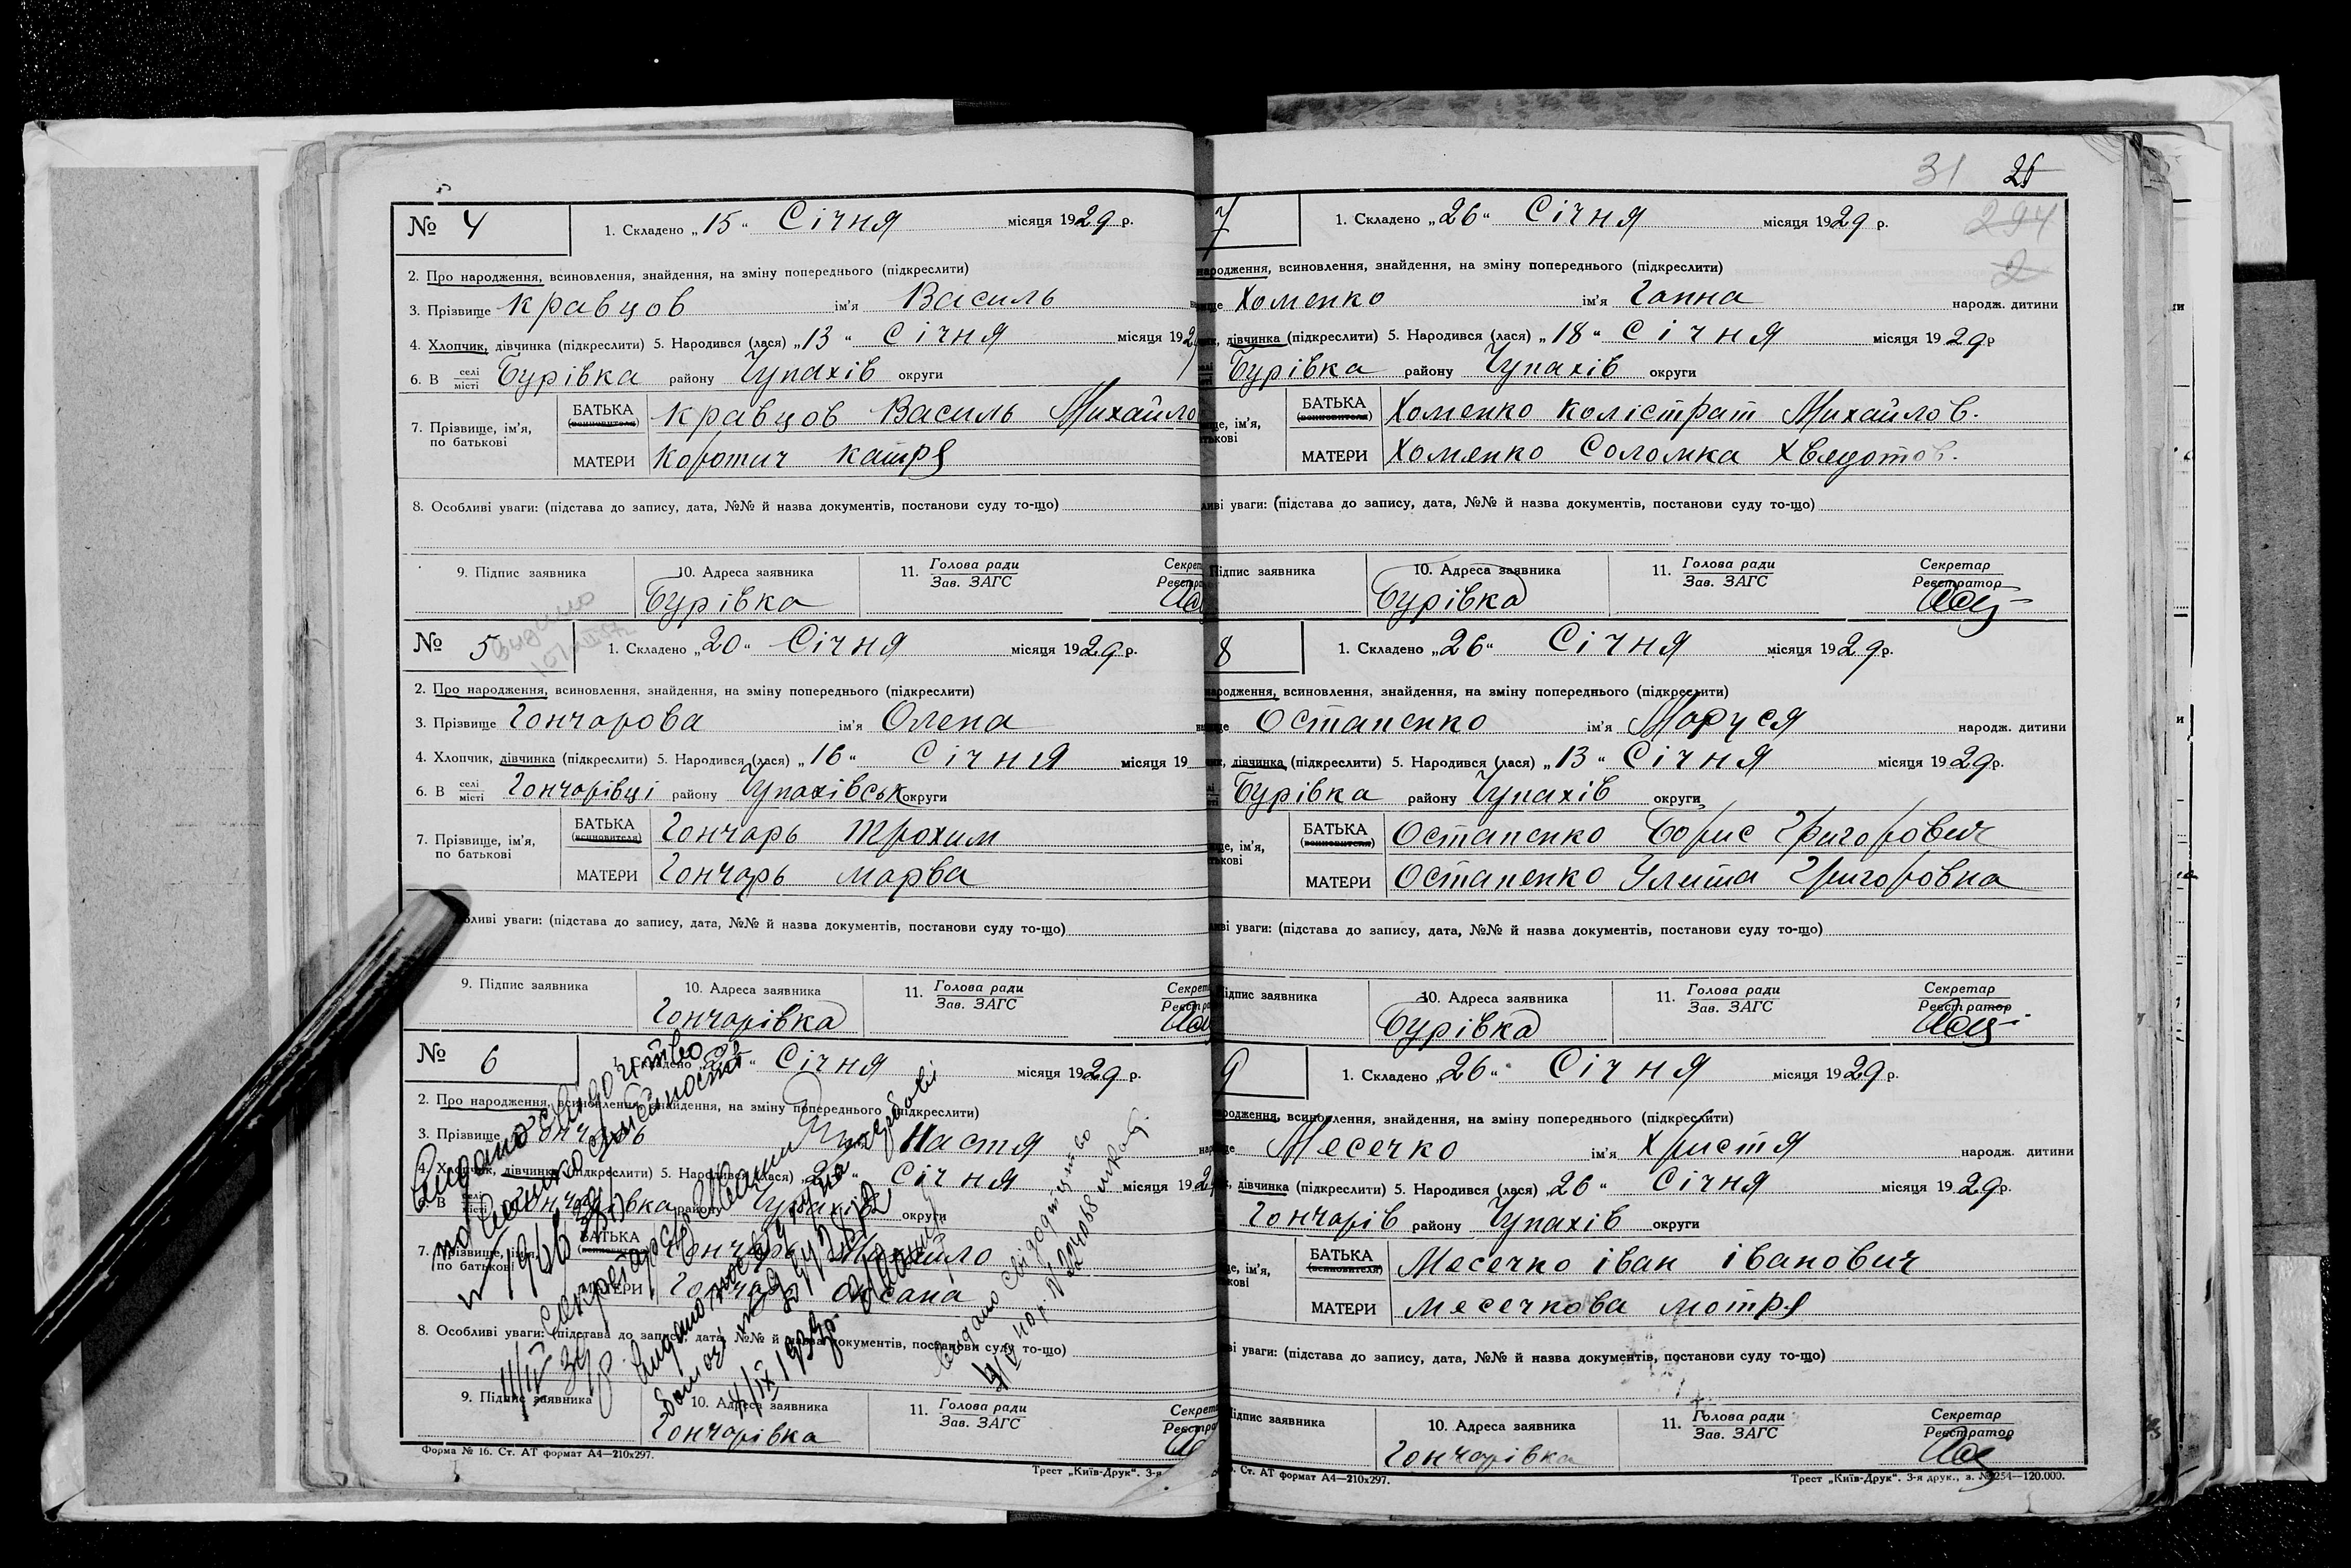 № 4
1. Складено „15“ Січня місяця 1929 р.
2. Про народження, всиновлення, знайдення, на зміну попереднього (підкреслити)
3. Прізвище Кравцов ім'я Василь
4. Хлопчик, дівчинка (підкреслити) 5. Народився (лася) „13“ Січня місяця 192
6. В селі місті Бурівка району Чупахів округи
7. Прізвище, ім'я, по батькові
БАТЬКА (всиновителя) Кравцов Василь Михайло
МАТЕРИ Коротич Катря
8. Особливі уваги: (підстава до запису, дата, №№ й назва документів, постанови суду то-що)
9. Підпис заявника 10. Адреса заявника 11. Голова ради Зав. ЗАГС
Бурівка
№ 5
1. Складено „20“ Січня місяця 1929 р.
2. Про народження, всиновлення, знайдення, на зміну попереднього (підкреслити)
3. Прізвище Гончарова ім'я Олена
4. Хлопчик, дівчинка (підкреслити) 5. Народився (лася) „16“ Січня місяця 19
6. В селі місті Гончарівці району Чупахівськ округи
7. Прізвище, ім'я, по батькові
БАТЬКА (всиновителя) Гончарь Трохим
МАТЕРИ Гончарь Марва
уваги: (підстава до запису, дата, №№ й назва документів, постанови суду то-що)
9. Підпис заявника 10. Адреса заявника 11. Голова ради Зав. ЗАГС
Гончарівка
№ 6
1. Складено Січня місяця 1929 р.
2. Про народження, всиновлення, знайдення, на зміну попереднього (підкреслити)
3. Прізвище Гончарь Настя
4. Хлопчик, дівчинка (підкреслити) 5. Народився (лася) Січня місяця 192
6. В селі місті Гончарівка району Чупахів округи
7. Прізвище, ім'я, по батькові
БАТЬКА Гончарь Михайло
МАТЕРИ Гончарь Оксана
8. Особливі уваги: (підстава до запису, дата, №№ й назва документів, постанови суду то-що)
9. Підпис заявника 10. Адреса заявника 11. Голова ради Зав. ЗАГС
Гончарівка
Форма № 16. Ст. АТ формат А4—210х297.
Трест „Київ-Друк“. 3-я
31 25
294
2
7
1. Складено „26“ Січня місяця 1929 р.
народження, всиновлення, знайдення, на зміну попереднього (підкреслити)
Хоменко ім'я Ганна народж. дитини
дівчинка (підкреслити) 5. Народився (лася) „18“ Січня місяця 1929 р
Бурівка району Чупахів округи
БАТЬКА (всиновителя) Хоменко Колістрат Михайлов.
МАТЕРИ Хоменко Соломка Хведотов.
уваги: (підстава до запису, дата, №№ й назва документів, постанови суду то-що)
Підпис заявника 10. Адреса заявника 11. Голова ради Зав. ЗАГС Секретар Реєстратор
Бурівка
8
1. Складено „26“ Січня місяця 1929 р.
народження, всиновлення, знайдення, на зміну попереднього (підкреслити)
Остапенко ім'я Маруся народж. дитини
дівчинка (підкреслити) 5. Народився (лася) „13“ Січня місяця 1929 р.
Бурівка району Чупахів округи
БАТЬКА (всиновителя) Остапенко Борис Григорович
МАТЕРИ Остапенко Улита Григоровна
уваги: (підстава до запису, дата, №№ й назва документів, постанови суду то-що)
Підпис заявника 10. Адреса заявника 11. Голова ради Зав. ЗАГС Секретар Реєстратор
Бурівка
9
1. Складено „26“ Січня місяця 1929 р.
народження, всиновлення, знайдення, на зміну попереднього (підкреслити)
Месечко ім'я Христя народж. дитини
дівчинка (підкреслити) 5. Народився (лася) 26“ Січня місяця 1929 р.
Гончарів району Чупахів округи
БАТЬКА (всиновителя) Месечко Іван Іванович
МАТЕРИ Месечкова Мотря
уваги: (підстава до запису, дата, №№ й назва документів, постанови суду то-що)
Підпис заявника 10. Адреса заявника 11. Голова ради Зав. ЗАГС Секретар Реєстратор
Гончарівка
Ст. АТ формат А4—210х297.
Трест „Київ-Друк“. 3-я друк., з. № 254—120.000.